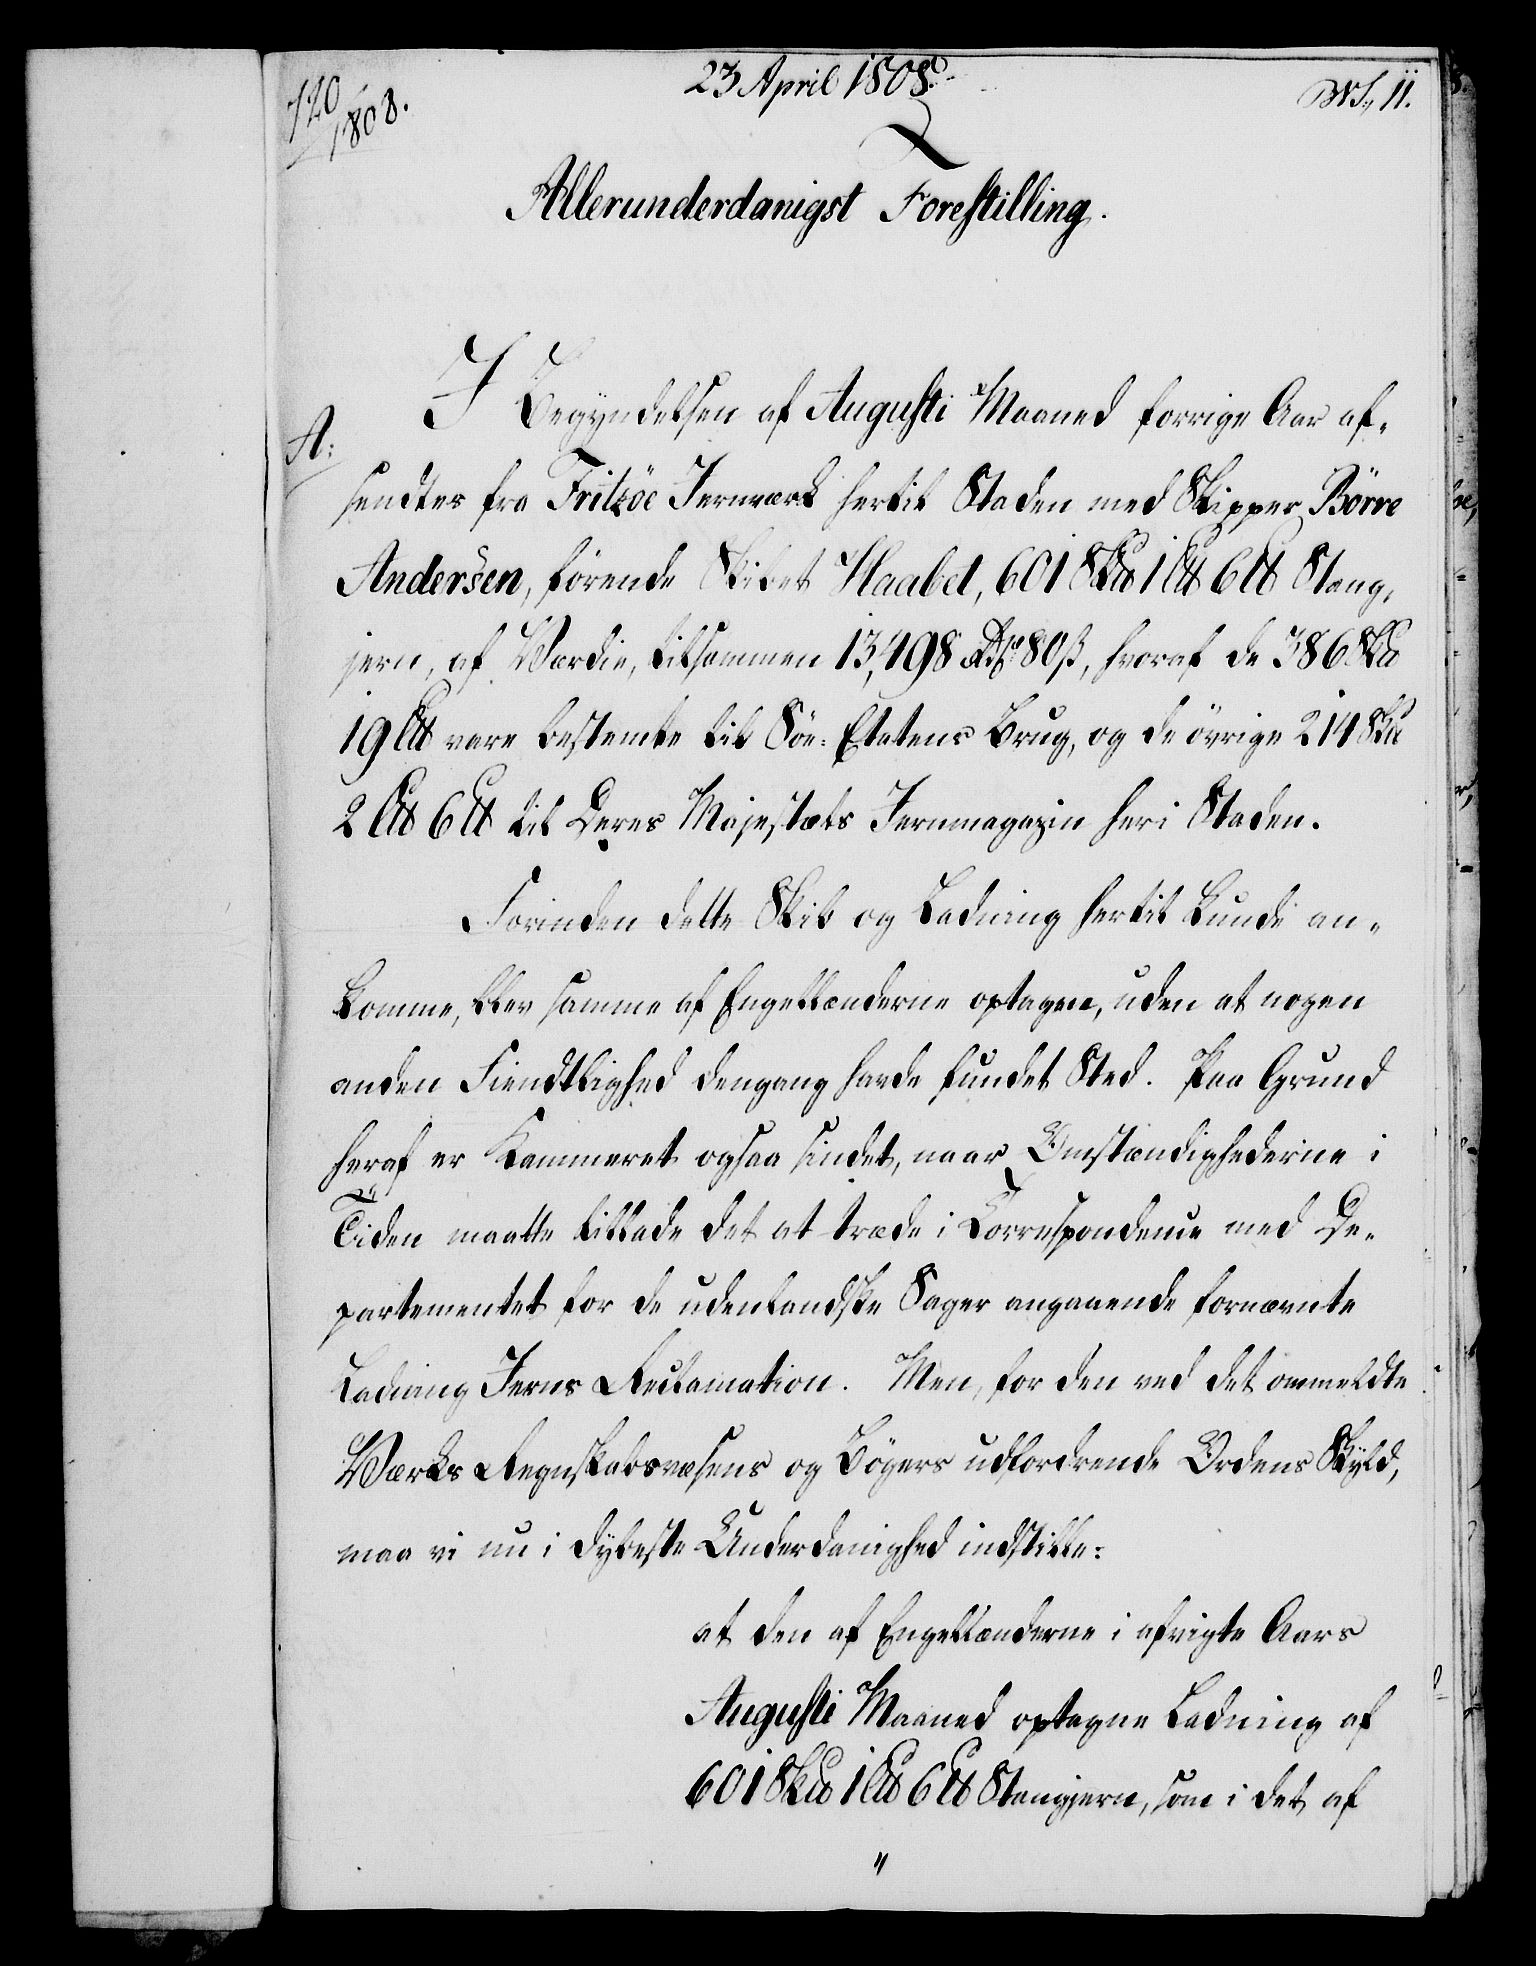 120
1808.
23 April 1808.
No. 11.
Allerunderdanigst Forestilling.
A:
I Begyndelsen af Augusti Maaned forrige Aar af-
sendtes fra Fritzöe Jernværk hertil Staden med Skipper Börre
Andersen, förende Skibet Haabet, 601 Sk℔ 1 L℔ 6 ℔ Stang-
jern, af Værdie, tilsammen 13,498 Rdr 80 ß, hvoraf de 386 Sk℔
19 L℔ vare bestemte til Söe-Etatens Brug, og de övrige 214 Sk℔
2 L℔ 6 ℔ til Deres Majestæts Jernmagazin her i Staden.
Forinden dette Skib og Ladning hertil kunde an-
komme, blev samme af Engellænderne optagne, uden at nogen
anden Fiendtlighed dengang havde fundet Sted. Paa Grund
heraf er Kammeret ogsaa sindet, naar Omstændighederne i
Tiden maatte tillade det at træde i Correspondence med De-
partementet for de udenlandske Sager angaaende fornævnte
Ladning Jerns Reclamation. Men, for den ved det ommeldte
Værks Regnskabsvæsens og Bögers udfordrende Ordens Skyld,
maa vi nu i dybeste Underdanighed indstille:
at den af Engellænderne i afvigte Aars
Augusti Maaned optagne Ladning af
601 Sk℔ 1 L℔ 6 ℔ Stangjern, som i det af
"